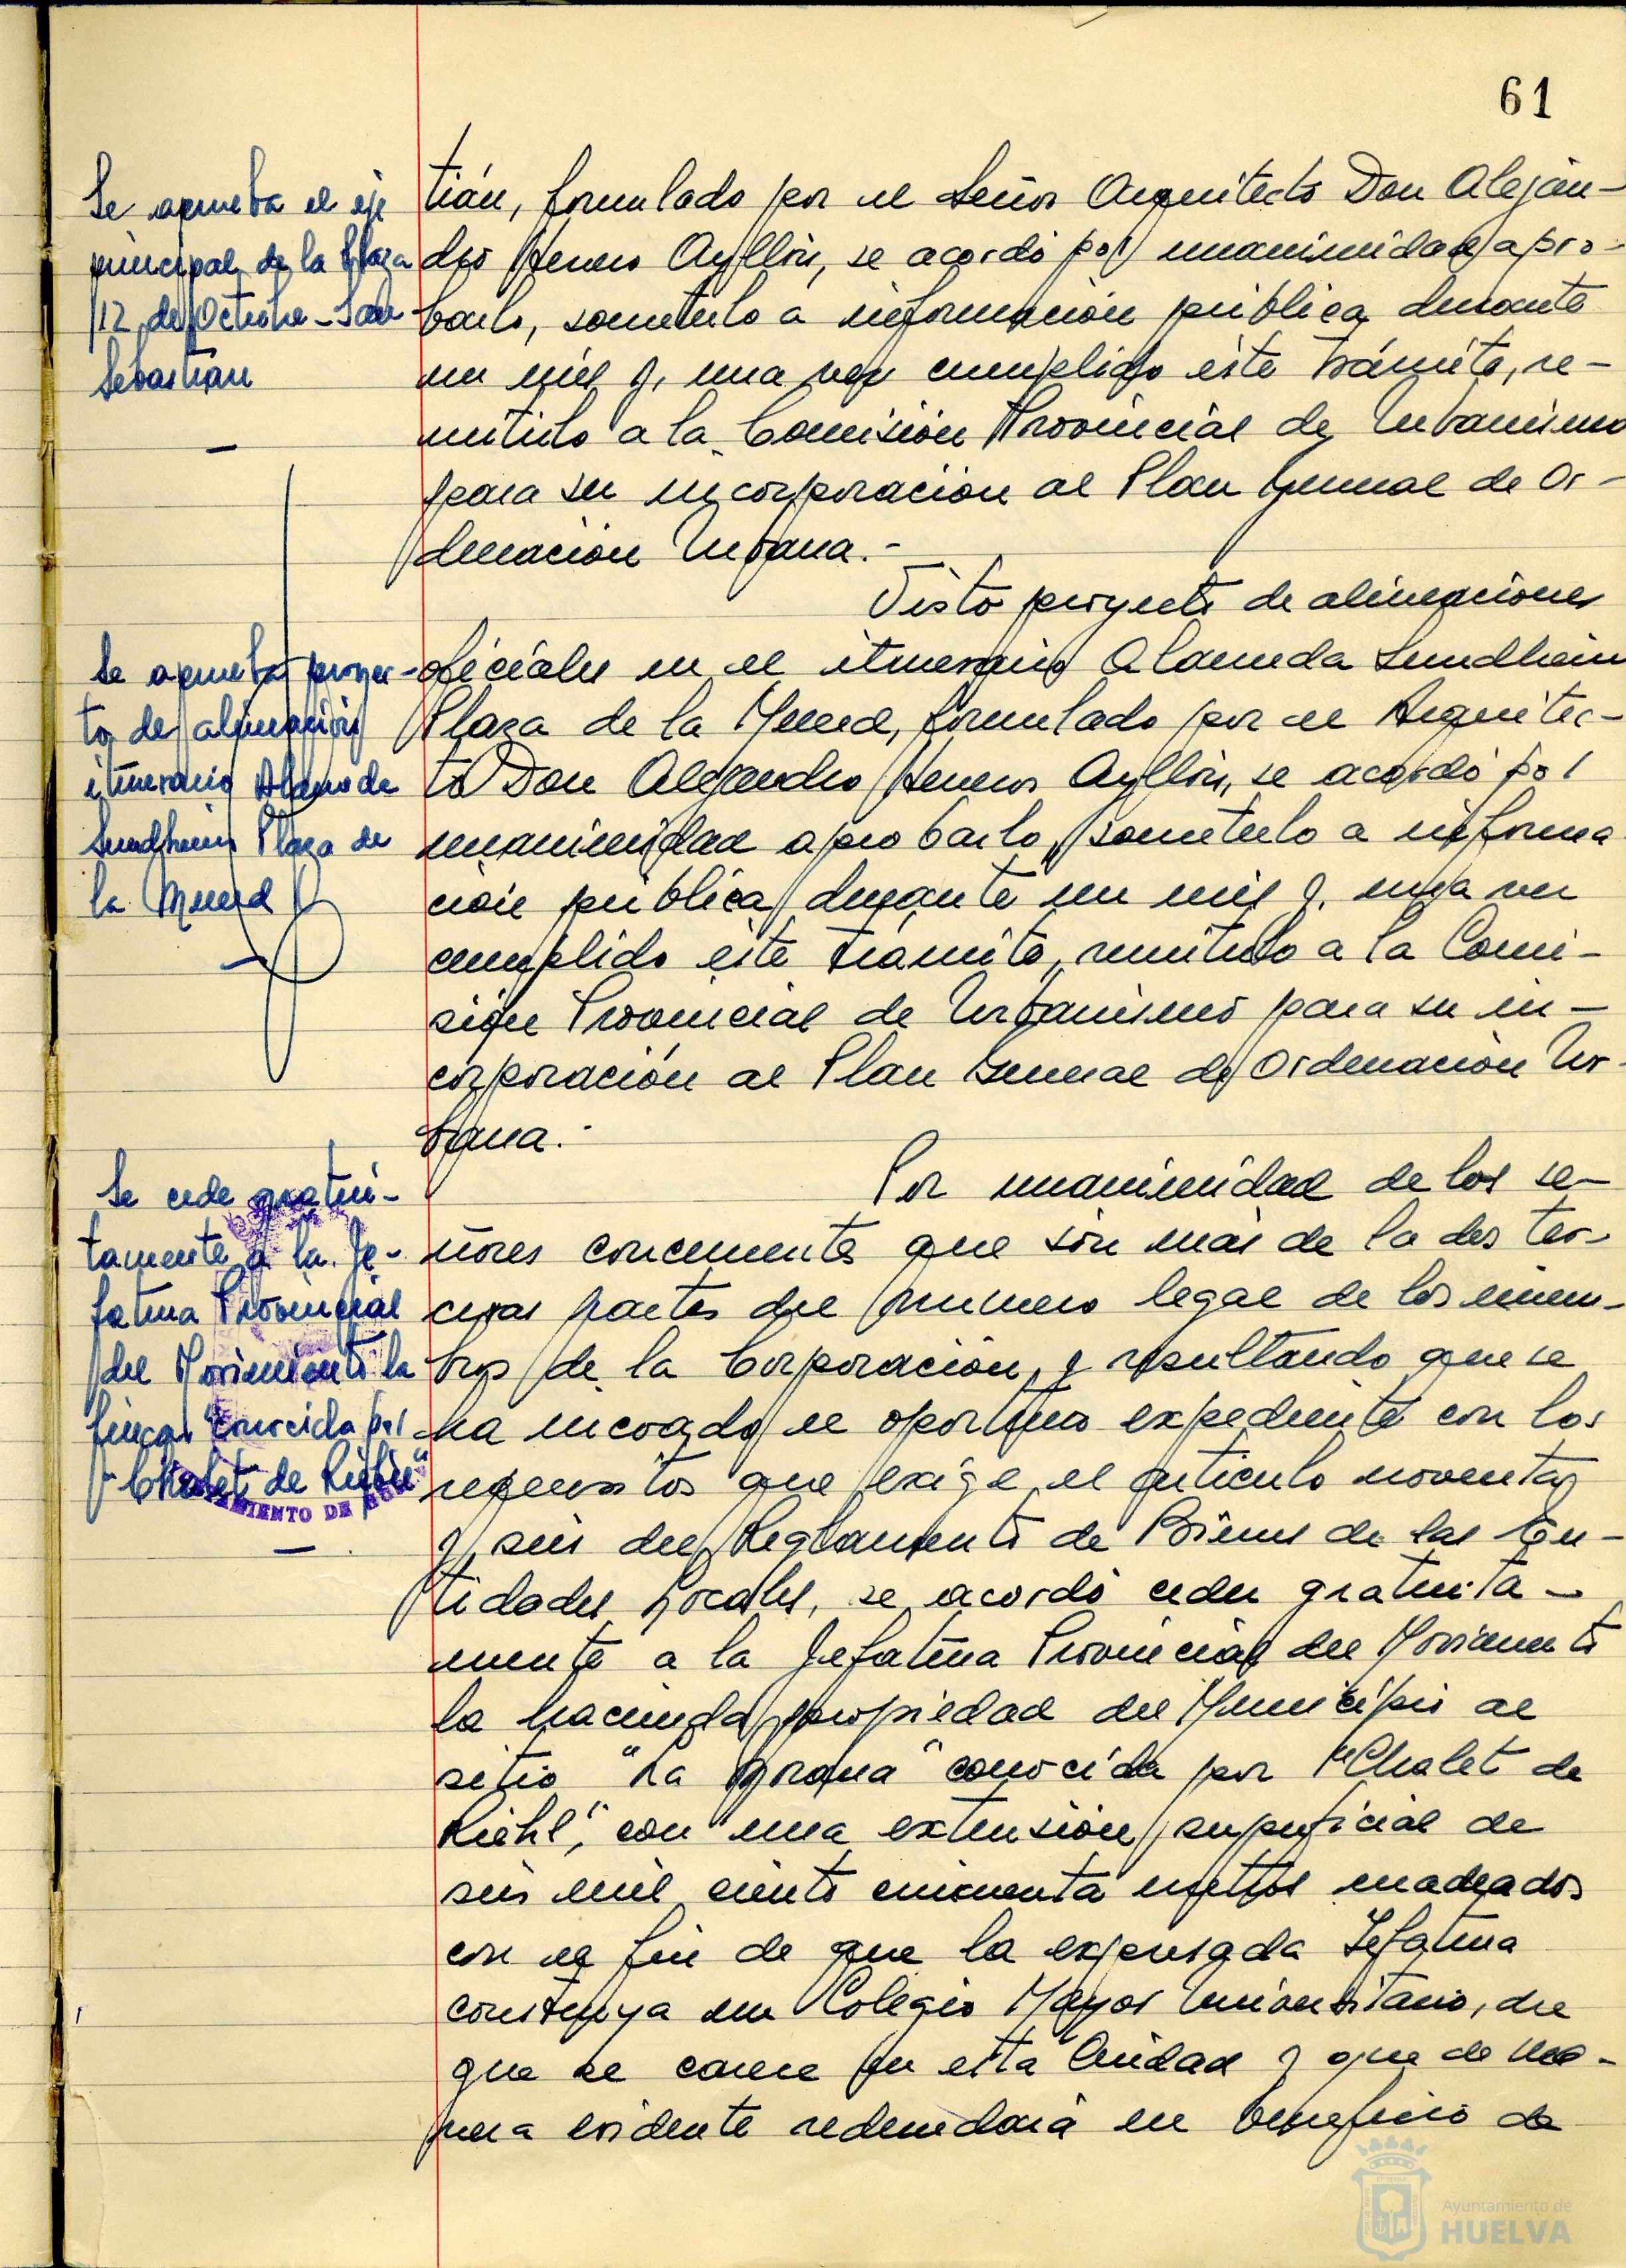 61
Se aprueba el eje
principal de la Plaza
12 de Octubre - San
Sebastián
tián, formulado por el Señor Arquitecto Don Alejan-
dro Herrero Ayllón, se acordó por unanimidad apro-
barlo, someterlo a información pública durante
un mes y, una vez cumplido este trámite, re-
mitirlo a la Comisión Provincial de Urbanismo
para su incorporación al Plan General de Or-
denación Urbana.-
Visto proyecto de alineaciones
Se aprueba proyec-
to de alineación
itinerario Alameda
Sundheim Plaza de
la Merced
oficiales en el itinerario Alameda Sundheim
Plaza de la Merced, formulado por el Arquitec-
to Don Alejandro Herrero Ayllón, se acordó por
unanimidad aprobarlo, someterlo a informa
ción pública durante un mes y, una vez
cumplido este trámite, remitirlo a la Comi-
sión Provincial de Urbanismo para su in-
corporación al Plan General de Ordenación Ur-
bana.-
Se cede gratui-
tamente a la Je-
fatura Provincial
del Movimiento la
finca conocida por
"Chalet de Riehl"
AYUNTAMIENTO DE HUELVA
Por unanimidad de los se-
ñores concurrentes que son más de la dos ter-
ceras partes del número legal de los miem-
bros de la Corporación, y resultando que se
ha incoado el oportuno expediente con los
requisitos que exige el artículo noventa
y seis del Reglamento de Bienes de las En-
tidades Locales, se acordó ceder gratuita-
mente a la Jefatura Provincial del Movimiento
la hacienda propiedad del Municipio al
sitio "La" conocida por "Chalet de
Riehl", con una extensión superficial de
seis mil ciento cincuenta metros cuadrados
con el fin de que la expresada Jefatura
construya un Colegio Mayor Universitario, del
que se carece en esta Ciudad y que de ma-
nera evidente redundará en beneficio de
Ayuntamiento de
HUELVA